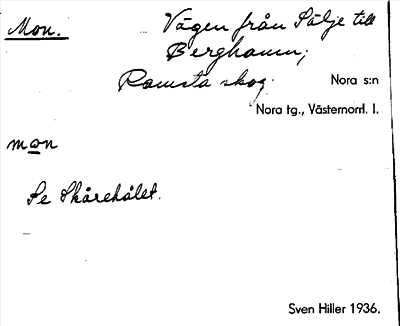 Mon.
Vägen från Sälje till
Berghamn;
Ramsta skog.
Nora s:n
Nora tg., Västernorrl. l.
mon
Se Skårehålet.
Sven Hiller 1936.